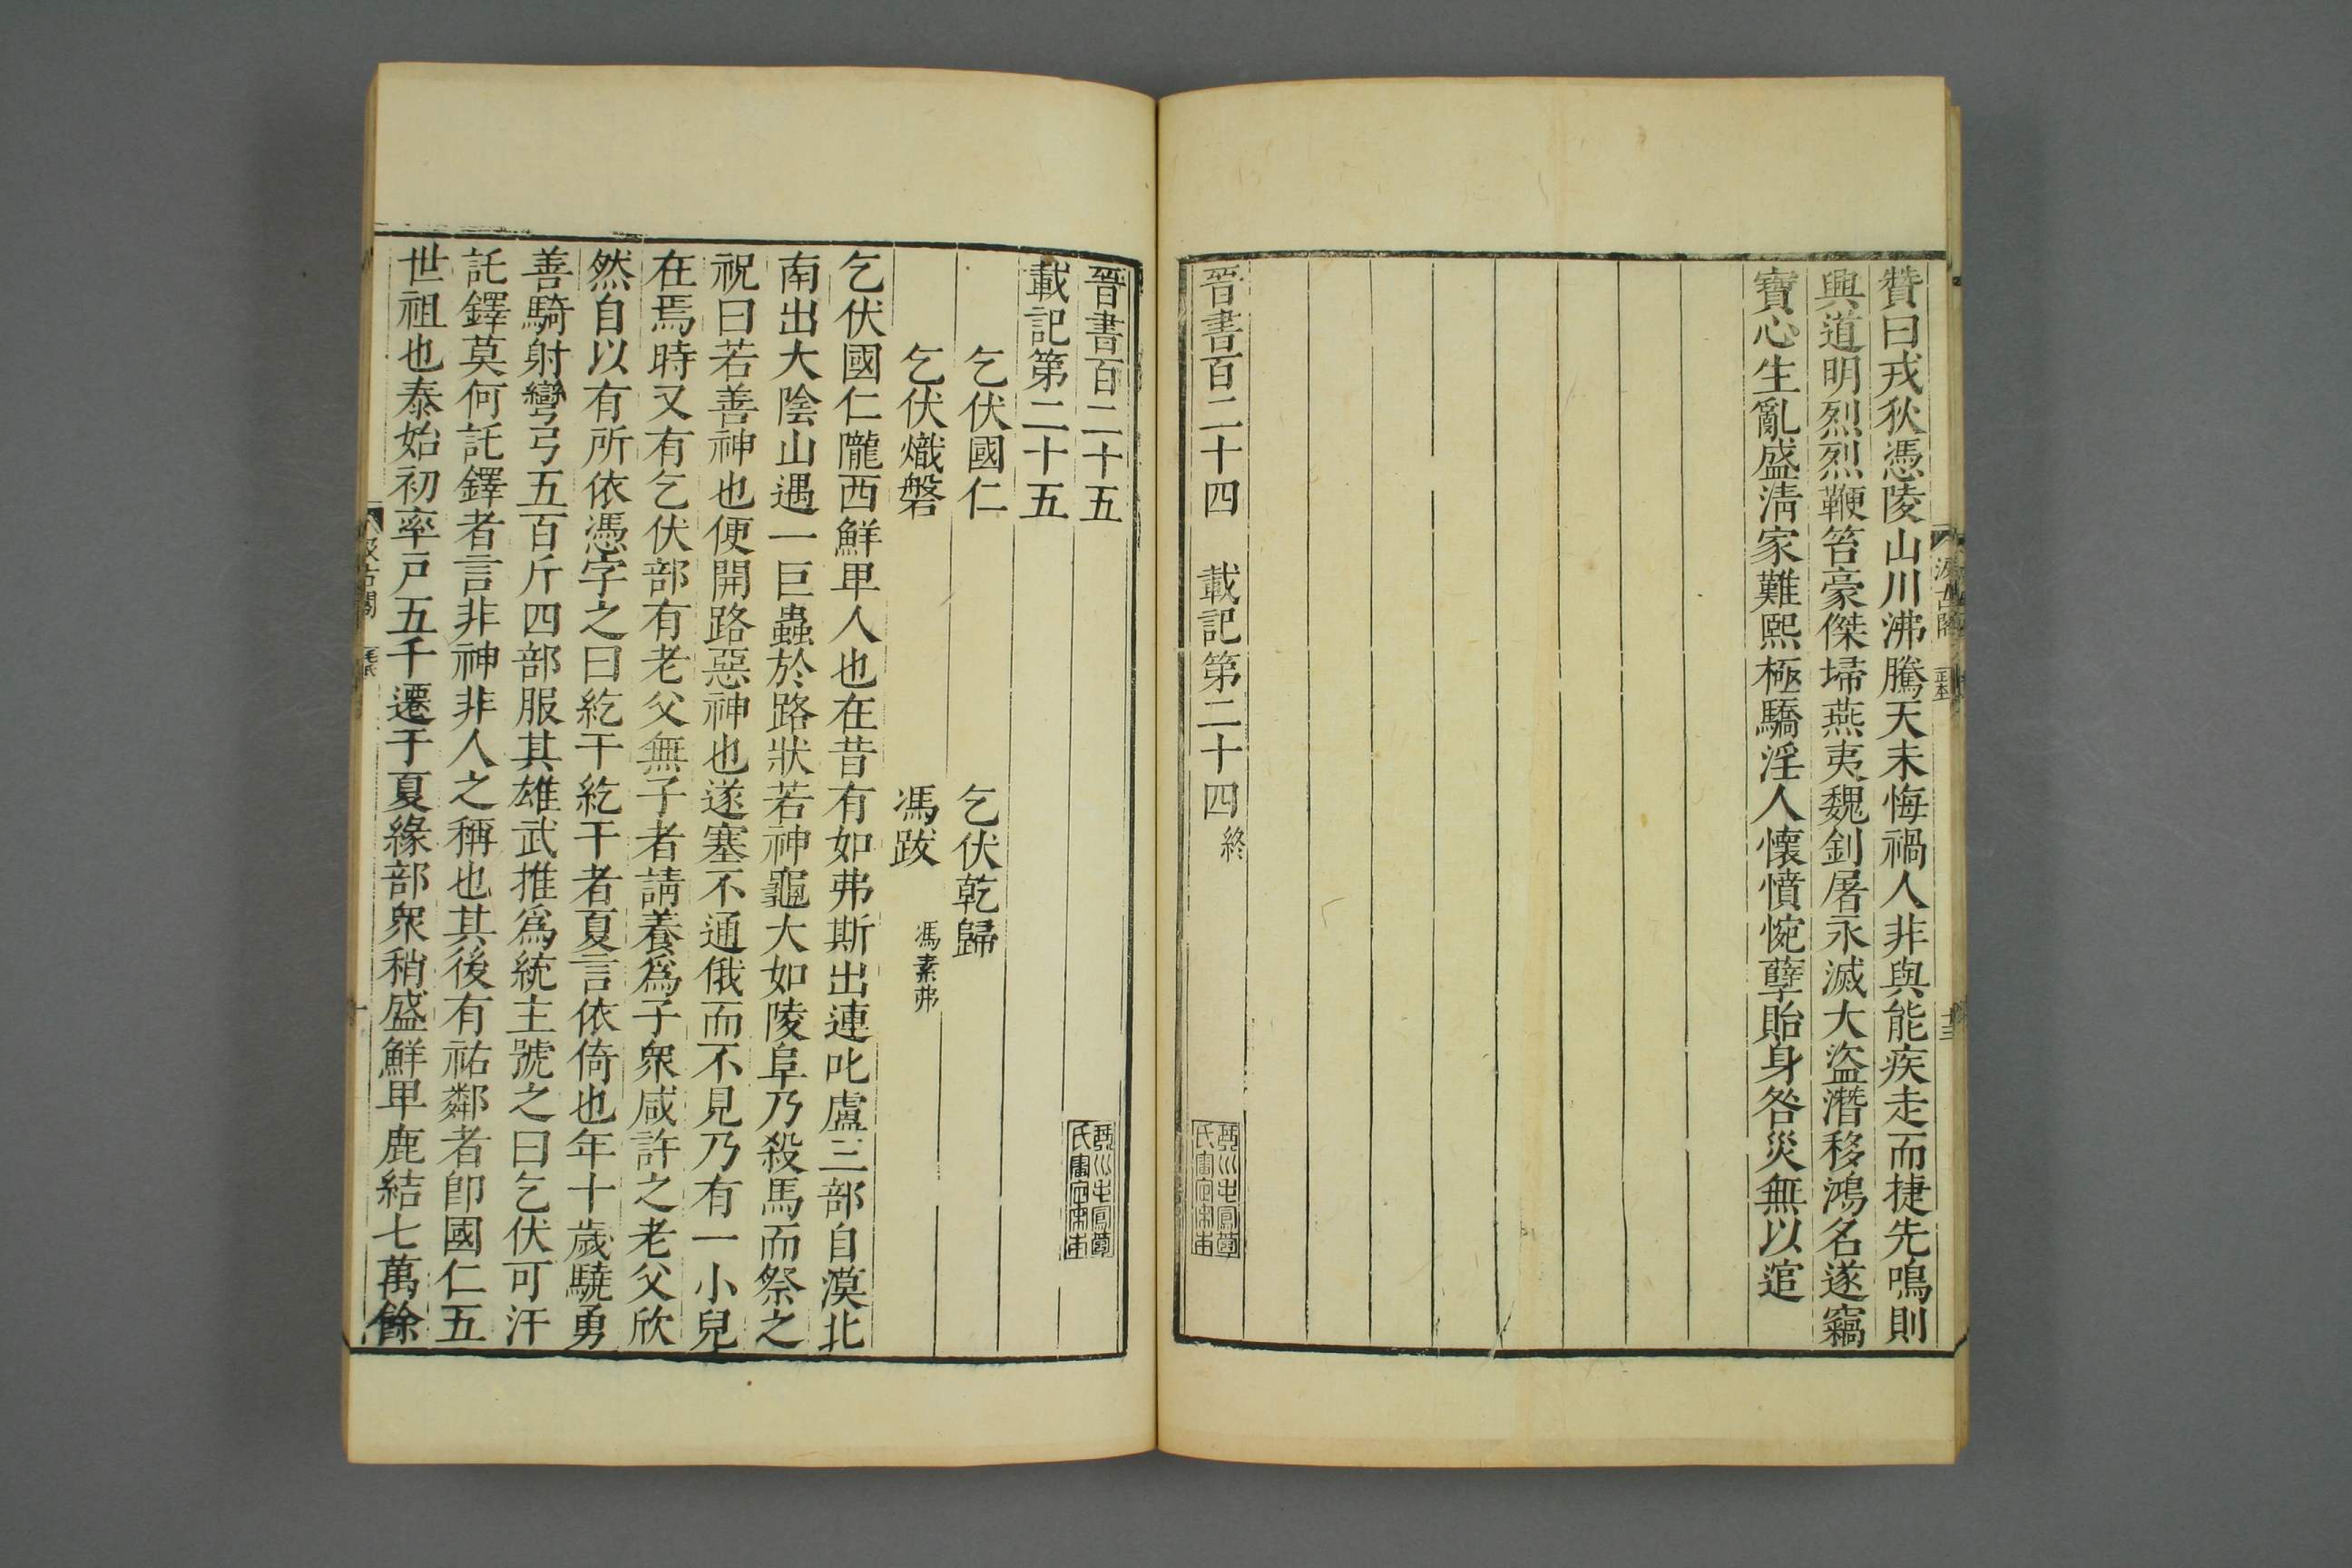 贊曰戎狄憑陵山川沸騰天未悔禍人非與能疾走而捷先鳴則
興道明烈烈鞭笞豪傑埽燕夷魏釗屠永滅大盜潛移鴻名遂竊
寶心生亂盛淸家難熙極驕淫人懷憤惋孽貽身咎災無以逭
晉書百二十四　載記第二十四終
晉書百二十五
載記第二十五
乞伏國仁　乞伏乾歸
乞伏熾磐　馮跋　馮素弗
乞伏國仁隴西鮮卑人也在昔有如弗斯出連叱盧三部自漠北
南出大陰山遇一巨蟲於路狀若神龜大如陵阜乃殺馬而祭之
祝曰若善神也便開路惡神也遂塞不通俄而不見乃有一小兒
在焉時又有乞伏部有老父無子者請養爲子衆咸許之老父欣
然自以有所依憑字之曰紇干紇干者夏言依倚也年十歲驍勇
善騎射彎弓五百斤四部服其雄武推爲統主號之曰乞伏可汗
託鐸莫何託鐸者言非神非人之稱也其後有祐鄰者卽國仁五
世祖也泰始初率戸五千遷于夏緣部衆稍盛鮮卑鹿結七萬餘